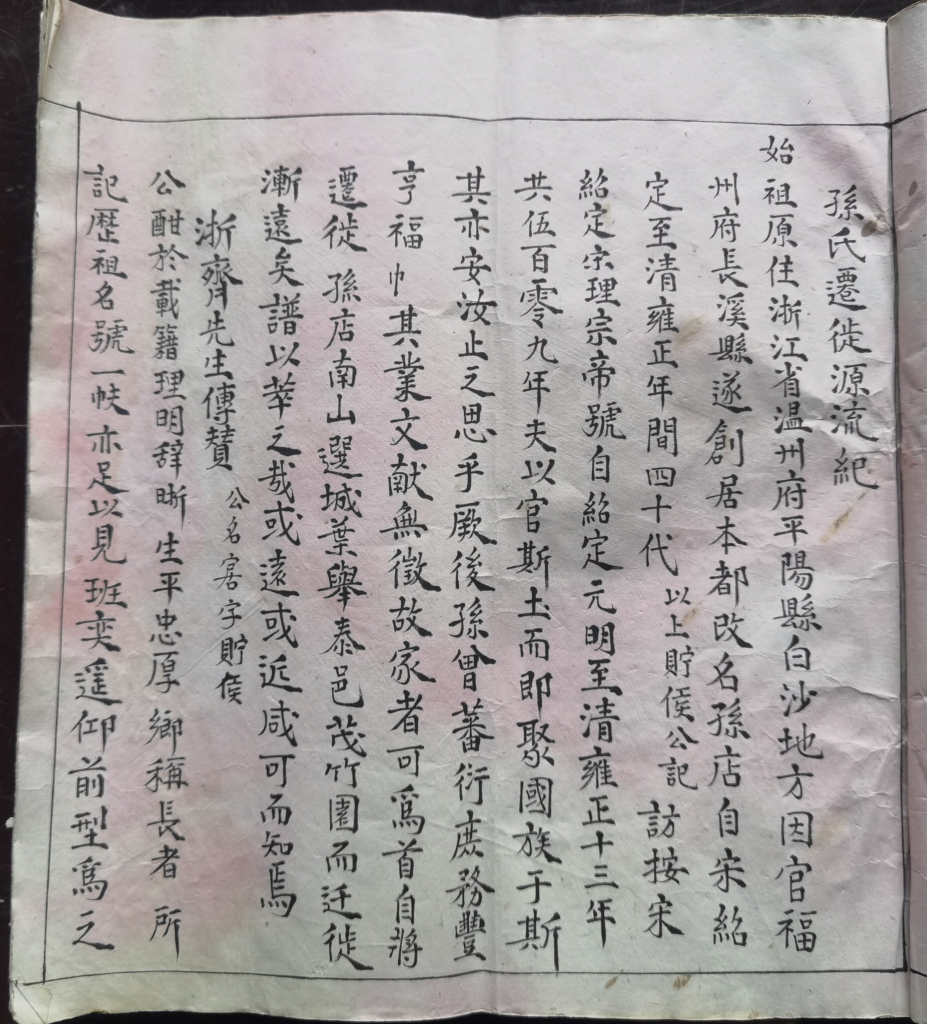 孫氏遷徙源流紀
始祖原住浙江省温州府平陽縣白沙地方因官福
州府長溪縣遂創居本都改名孫店自宋紹
定至清雍正年間四十代以上貯侯公記訪按宋
紹定宗理宗帝號自紹定元明至清雍正十三年
共伍百零九年夫以官斯土而即聚國族于斯
其亦安汝止之思乎厥後孫曾蕃衍庶務豐
亨福巾其業文献無徵故家者可爲首自將
遷徙孫店南山選城葉舉泰邑茂竹園而迁徙
漸遠矣譜以萃之哉或遠或近咸可而知焉
浙齊先生傳賛公名寚字貯侯
公酣於載籍理明辞晰生平忠厚鄉稱長者所
記歷祖名號一帙亦足以見班奕遥仰前型爲之